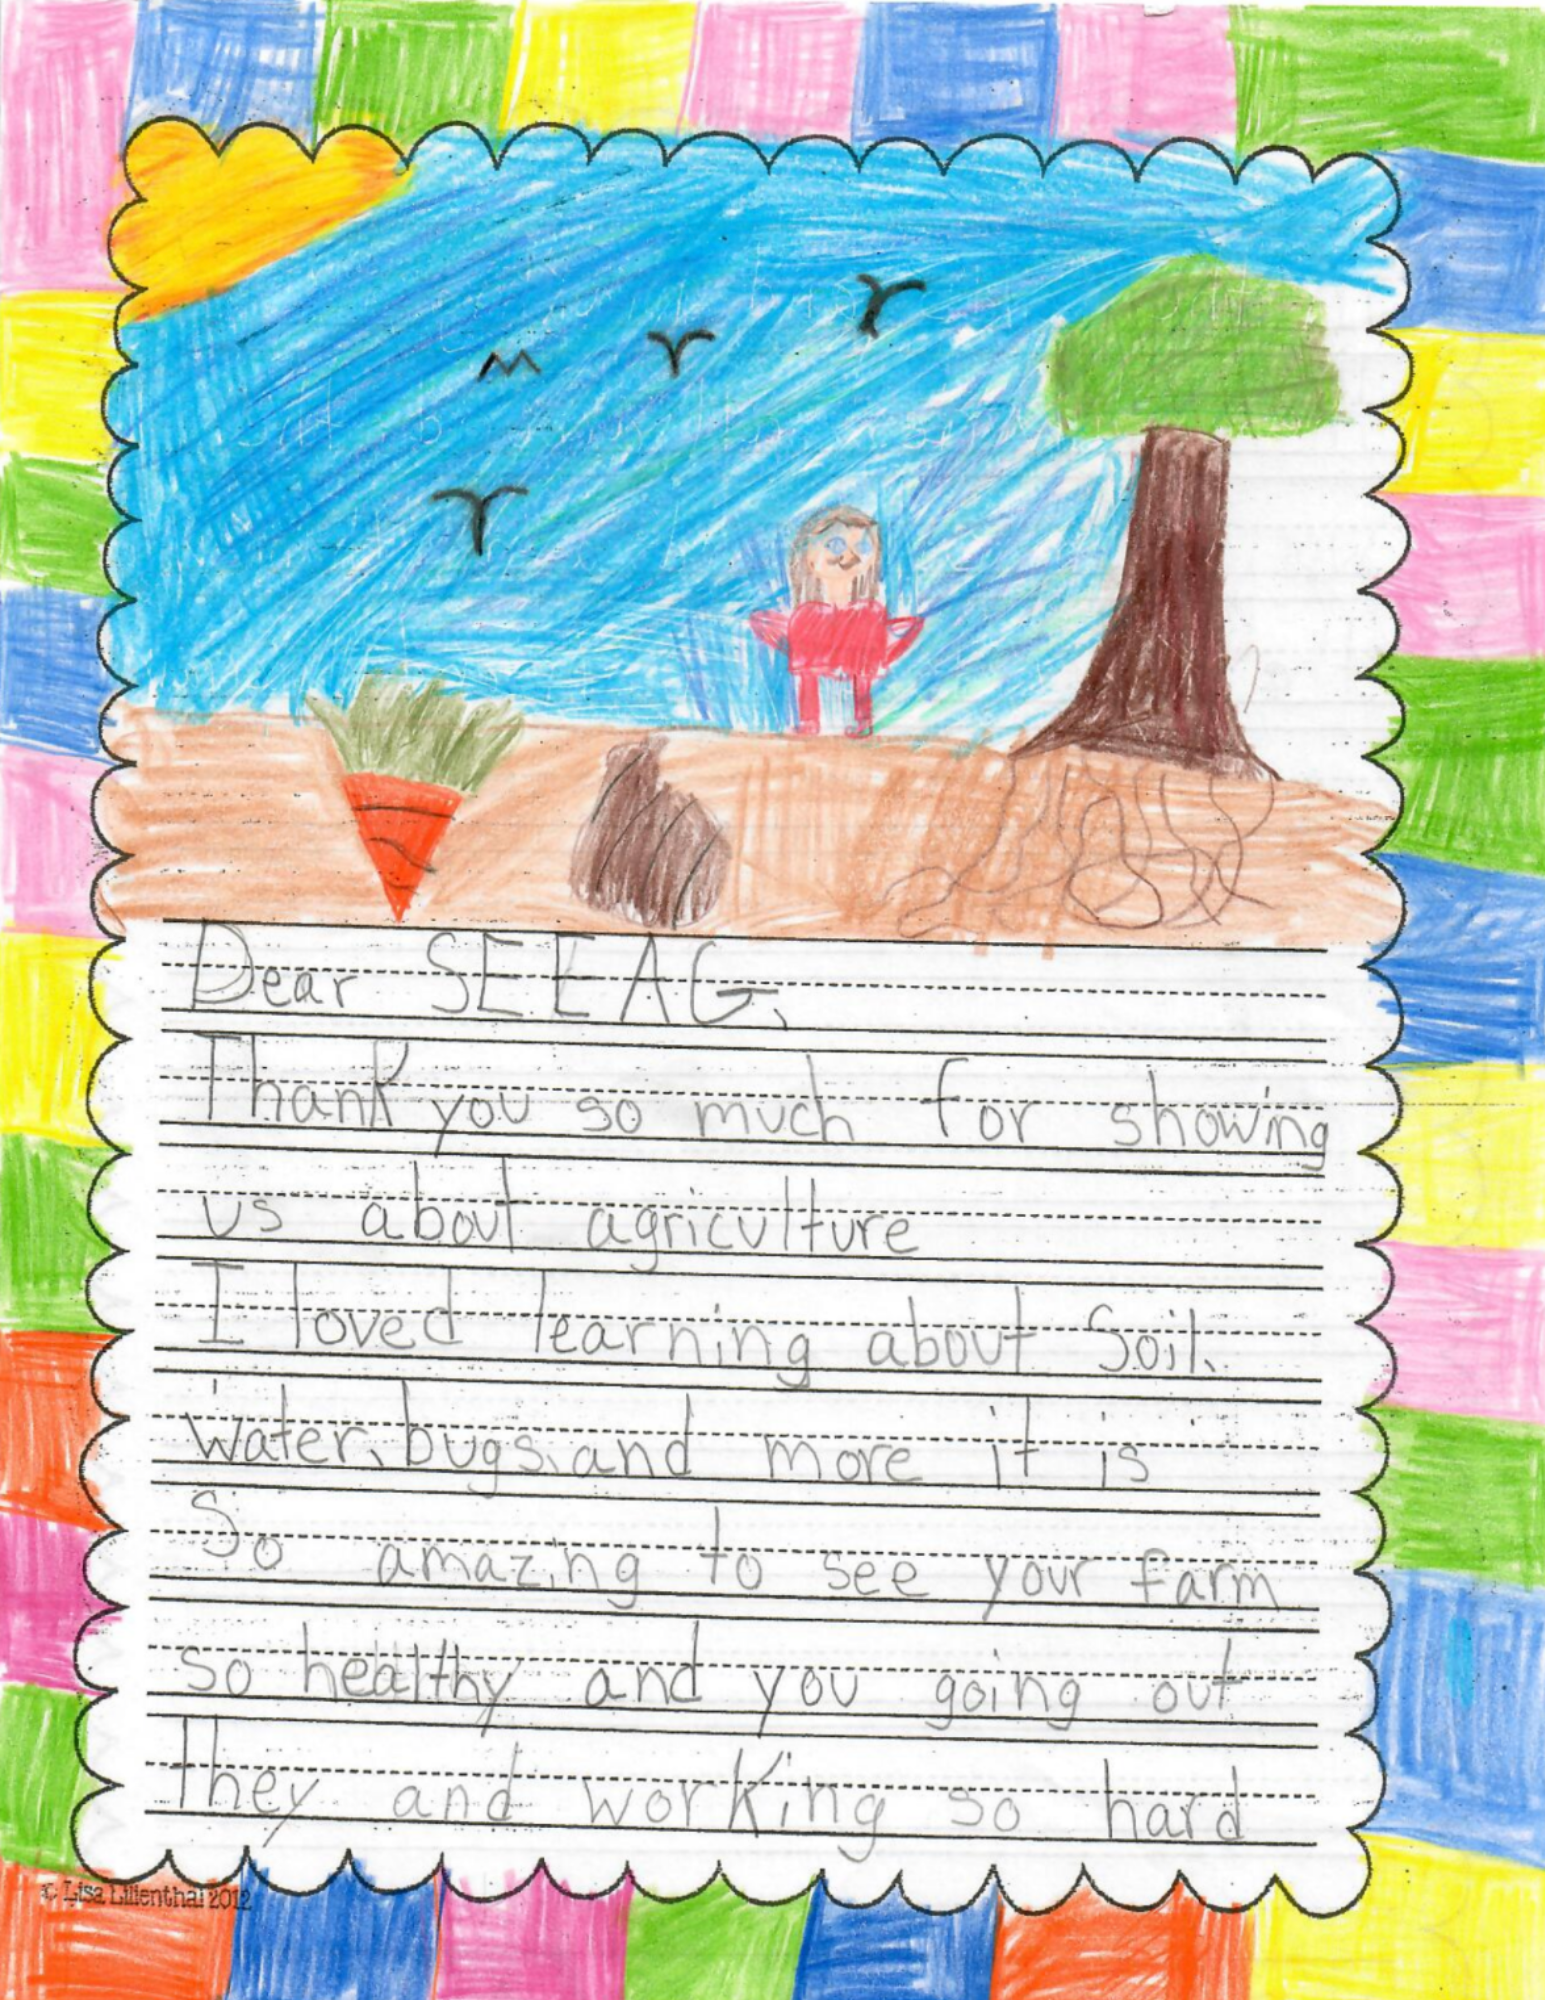 Dear SEEAG,
Thank you so much for showing
us about agriculture
I loved learning about Soil,
water, bugs, and more it is
So amazing to see your farm
so healthy and you going out
they and working so hard
© Lisa Lilienthal 2012